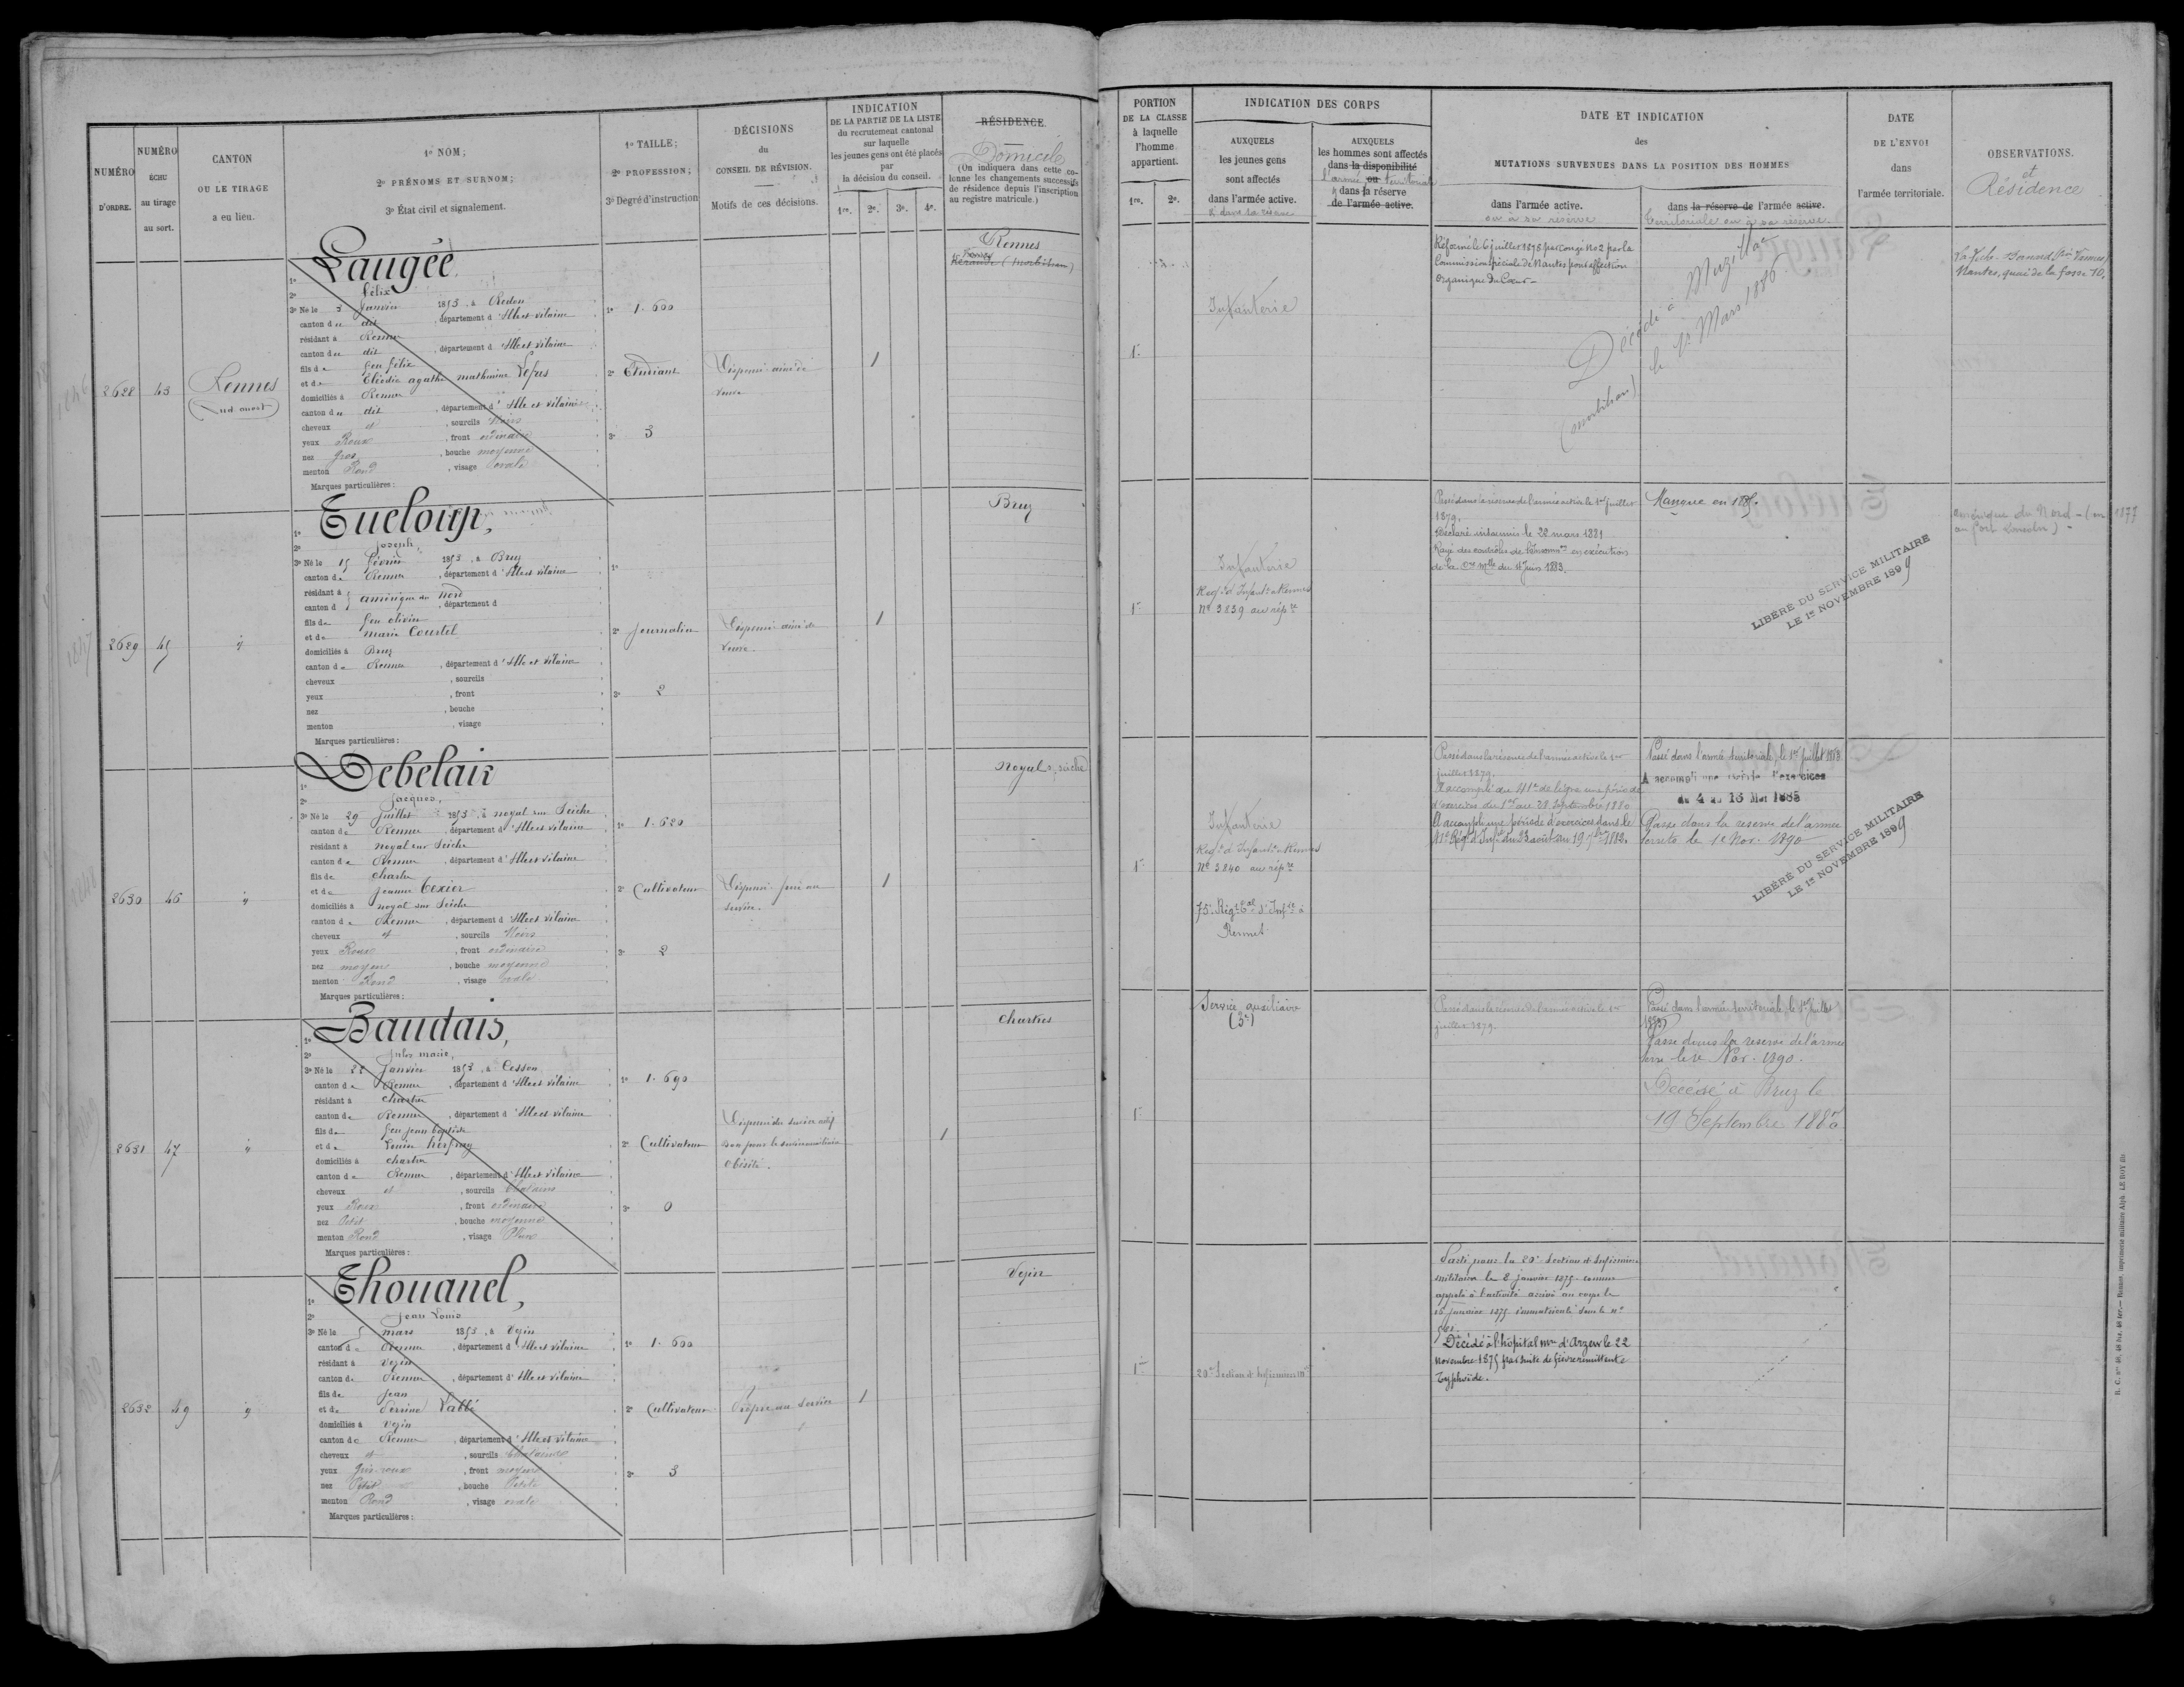 NUMÉRO D'ORDRE.
NUMÉRO ÉCHU au tirage au sort.
CANTON OU LE TIRAGE a eu lieu.
1º NOM;
2º PRÉNOMS ET SURNOM;
3º État civil et signalement.
1º TAILLE;
2º PROFESSION;
3º Degré d'instruction
DÉCISIONS du CONSEIL DE RÉVISION.
Motifs de ces décisions.
INDICATION DE LA PARTIE DE LA LISTE du recrutement cantonal sur laquelle les jeunes gens ont été placés par la décision du conseil.
1re. 2e. 3e. 4e.
RÉSIDENCE.
Domicile
(On indiquera dans cette colonne les changements successifs de résidence depuis l'inscription au registre matricule.)
2628
43
Rennes
(Sud ouest)
Laugée
1º
2º Félix
3º Né le 3 Janvier 1853, à Redon
canton du dit, département d'Ille et vilaine
résidant à Rennes
canton du dit, département d'Ille et vilaine
fils de feu félix
et de Elodie agathe mathurine
domiciliés à Rennes
canton du dit, département d'Ille et vilaine
cheveux et, sourcils Noirs
yeux Roux, front ordinaire
nez gros, bouche moyenne
menton Rond, visage ovale
Marques particulières:
1º 1.600
2º Etudiant
3º 3
Dispensé ainé de
veuve
1
Rennes
2629
45
Tueloup,
1º
2º Joseph,
3º Né le 15 février 1853, à Bruz
canton de Rennes, département d'Ille et vilaine
résidant à amérique du Nord
canton d , département d
fils de feu olivier
et de marie Courtel
domiciliés à Bruz
canton de Rennes, département d'Ille et vilaine
cheveux , sourcils
yeux , front
nez , bouche
menton , visage
Marques particulières:
1º
2º Journalier
3º 2
Dispensé ainé de
veuve.
1
Bruz
2630
46
Debelair
1º
2º Jacques,
3º Né le 29 Juillet 1853, à noyal sur Seiche
canton de Rennes, département d'Ille et vilaine
résidant à noyal sur Seiche
canton de Rennes, département d'Ille et vilaine
fils de charles
et de Jeanne Texier
domiciliés à noyal sur Seiche
canton de Rennes, département d'Ille et vilaine
cheveux et, sourcils Noirs
yeux Roux, front ordinaire
nez moyen, bouche moyenne
menton Rond, visage ovale
Marques particulières:
1º 1.620
2º Cultivateur
3º 2
Dispensé frère au
service.
1
Noyal s. seiche
2631
47
Baudais,
1º
2º Jules marie,
3º Né le Janvier 1853, à Cesson
canton de Rennes, département d'Ille et vilaine
résidant à chartres
canton de Rennes, département d'Ille et vilaine
fils de feu jean baptiste
et de Louise
domiciliés à chartres
canton de Rennes, département d'Ille et vilaine
cheveux et, sourcils chatains
yeux Roux, front ordinaire
nez Petit, bouche moyenne
menton Rond, visage
Marques particulières:
1º 1.690
2º Cultivateur
3º 0
Dispensé du service actif
bon pour le service auxiliaire
obésité.
1
Chartres
2632
49
Thouanel,
1º
2º Jean Louis
3º Né le 5 mars 1853, à Vezin
canton de Rennes, département d'Ille et vilaine
résidant à Vezin
canton de Rennes, département d'Ille et vilaine
fils de Jean
et de Perrine Vallé
domiciliés à Vezin
canton de Rennes, département d'Ille et vilaine
cheveux et, sourcils chatains
yeux gris roux, front moyen
nez Petit, bouche Petite
menton Rond, visage ovale
Marques particulières:
1º 1.600
2º Cultivateur
3º 3
Propre au service
1
Vezin
PORTION DE LA CLASSE à laquelle l'homme appartient.
1re. 2e.
INDICATION DES CORPS
AUXQUELS les jeunes gens sont affectés dans l'armée active.
& dans sa réserve
AUXQUELS les hommes sont affectés dans la disponibilité ou dans la réserve de l'armée active.
l'armée territoriale
DATE ET INDICATION des MUTATIONS SURVENUES DANS LA POSITION DES HOMMES
dans l'armée active.
ou à sa réserve
dans la réserve de l'armée active.
territoriale ou à sa réserve.
DATE DE L'ENVOI dans l'armée territoriale.
OBSERVATIONS.
et
Résidence
1re
Infanterie
Réformé le 6 juillet 1878 par congé No 2 par la
Commission Spéciale de Nantes pour affection
organique du Cœur -
Décédé à Muzillac
(morbihan) le 1er Mars 1886
Nantes, quai de la fosse 70.
1re
Infanterie
Regt d'Infant. à Rennes
Nº 3839 au répre
Passé dans la réserve de l'armée active le 1er Juillet
1879.
Déclaré insoumis le 28 mars 1881
Rayé des contrôles de l'Insoumon en exécution
de la Cre Mlle du 4 Juin 1883.
Manque en 1885.
LIBÉRÉ DU SERVICE MILITAIRE
LE 1er NOVEMBRE 1899
Amérique du Nord - (en 1877
au fort Lincoln) -
1re
Infanterie
Regt d'Infant. à Rennes
Nº 3840 au répre
75e Régt tal d'Infie à
Rennes
Passé dans la réserve de l'armée active le 1er
juillet 1879.
A accompli au 41e de ligne une période
d'exercices du 1er au 28 Septembre 1880
A accompli une période d'exercices dans le
41e Régt d'Infie du 23 août au 19 7bre 1882.
Passé dans l'armée territoriale le 1er Juillet 1883
A accompli une période d'exercices
du 4 au 16 Mai 1885
Passe dans la réserve de l'armée
territe le 1er Nov. 1890
LIBÉRÉ DU SERVICE MILITAIRE
LE 1er NOVEMBRE 1899
1re
Service auxiliaire
(3e)
Passé dans la réserve de l'armée active le 1er
juillet 1879.
Passé dans l'armée territoriale le 1er Juillet
1883
Passe dans la réserve de l'armée
terre le 1er Nov. 1890.
Décédé à Bruz le
19 Septembre 1880
1re
20e Section d'Infirmiers mres
Parti pour la 20e Section d'Infirmiers
militaires le 8 janvier 1875 comme
appelé à l'activité arrivé au corps le
16 janvier 1875 immatriculé sous le nº
Décédé à l'hôpital mre d'Arzew le 22
novembre 1875 par suite de fièvre rémittente
typhoïde.
R. C. Nos 48, 48 bis, 48 ter. — Rennes, imprimerie militaire Alph. LE ROY fils